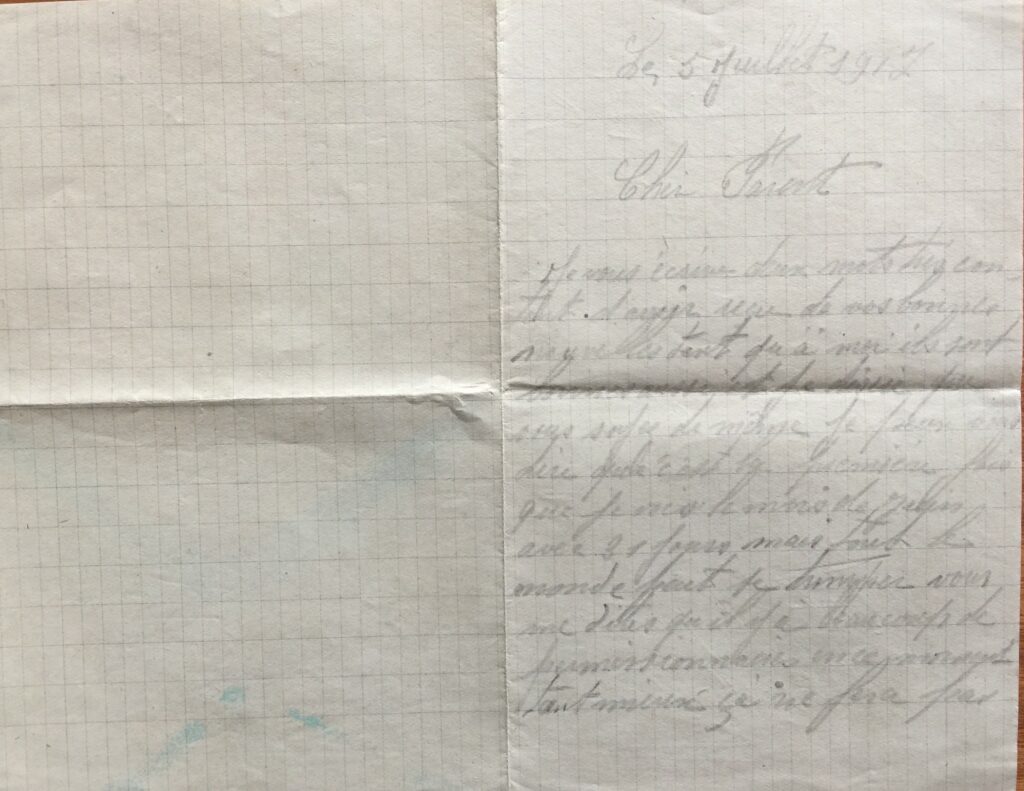 Le, 5 Juillet 1917
Cher Parent
Je vous écrive deux mots très con
tent d'avoir reçu de vos bonnes
nouvelles tant qu'à moi ils sont
et je désire que
vous soyez de même je peux vous
dire que c'est la première fois
que je vois le mois de Juin
avec 31 jours, mais tout le
monde peut se tromper vous
me dites qu'il y a beaucoup de
permissionnaire en ce moment
tant mieux ça ne fera pas